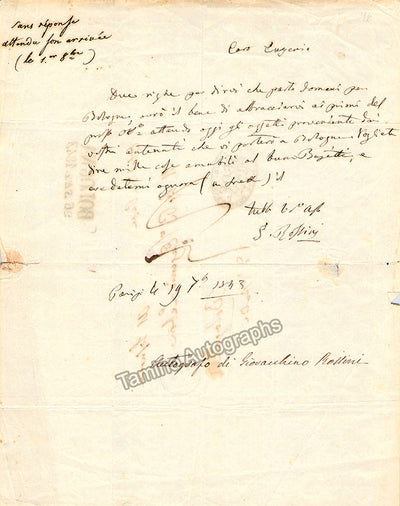 sans réponse
attendu son arrivée
(le 1.er 8bre)
Caro Eugenio
Due righe per dirvi che parto domani per
Bologna, avrò il bene di abbracciarvi ai primi del
pross° 8bre attendo oggi gli oggetti proveniente dai
vostri che vi porterò a Bologna. Vogliate
dire mille cose amabili al buon e
credetemi ognora (in fretta) il
tutto vostro
G. Rossini
Parigi li 19 7b 1843
Autografo di Giovacchino Rossini
Tamino Autographs